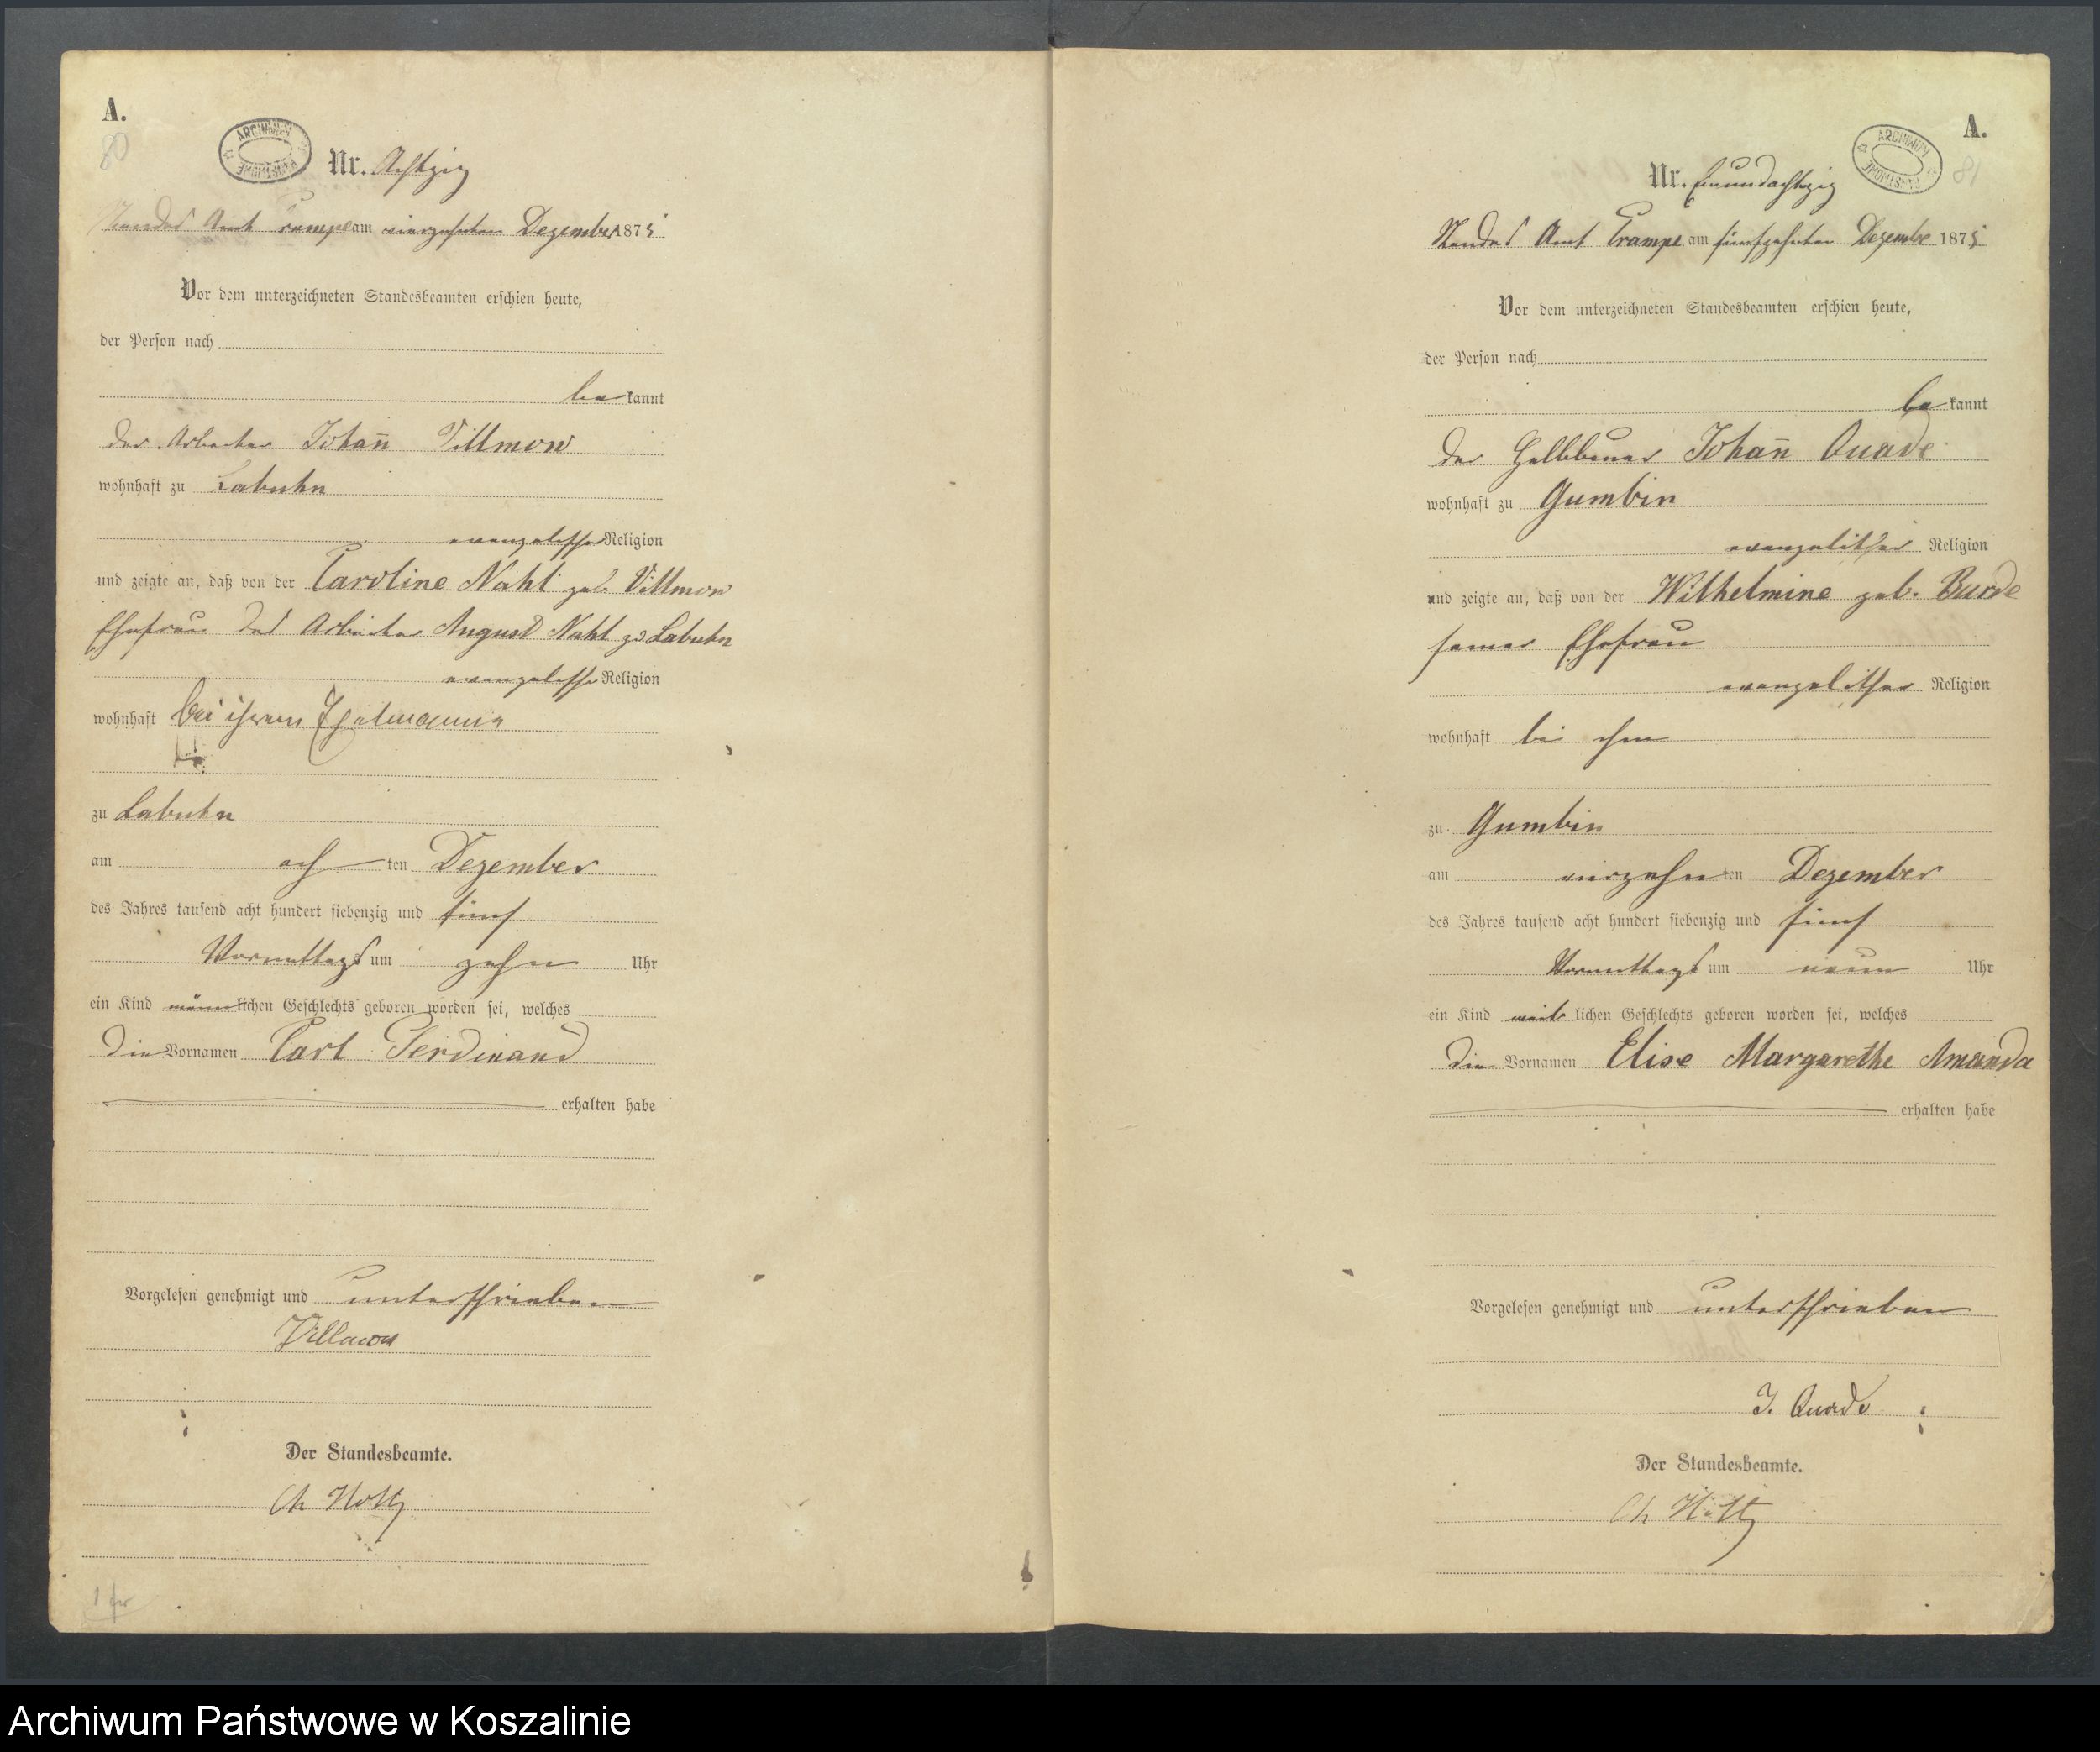 A.
80
ARCHIWUM PAŃSTWOWE
Nr. Achtzig
Standes Amt Trampe am vierzehnten Dezember 1875
Vor dem unterzeichneten Standesbeamten erschien heute,
der Person nach
be kannt
der Arbeiter Johan̄ Villmow
wohnhaft zu Labuhn
evangelischer Religion
und zeigte an, daß von der Caroline Nahl geb. Villmow
Ehefrau des Arbeiter August Nahl zu Labuhn
evangelischer Religion
wohnhaft bei ihrem Ehemanne
zu Labuhn
am ach ten Dezember
des Jahres tausend acht hundert siebenzig und fünf
Vormittags um zehn Uhr
ein Kind männlichen Geschlechts geboren worden sei, welches
die Vornamen Carl Ferdinand
erhalten habe
Vorgelesen genehmigt und unterschrieben
Villmow
Der Standesbeamte.
Ch Holtz
A.
81
ARCHIWUM PAŃSTWOWE
Nr. Einundachtzig
Standes Amt Trampe am fünfzehnten Dezember 1875
Vor dem unterzeichneten Standesbeamten erschien heute,
der Person nach
be kannt
der Halbbauer Johan̄ Quade
wohnhaft zu Gumbin
evangelischer Religion
und zeigte an, daß von der Wilhelmine geb. Burde
seiner Ehefrau
evangelischer Religion
wohnhaft bei ihm
zu Gumbin
am vierzehn ten Dezember
des Jahres tausend acht hundert siebenzig und fünf
Vormittags um neun Uhr
ein Kind weib lichen Geschlechts geboren worden sei, welches
die Vornamen Elise Margarethe Amanda
erhalten habe
Vorgelesen genehmigt und unterschrieben
J. Quade
Der Standesbeamte.
Ch Holtz
Archiwum Państwowe w Koszalinie